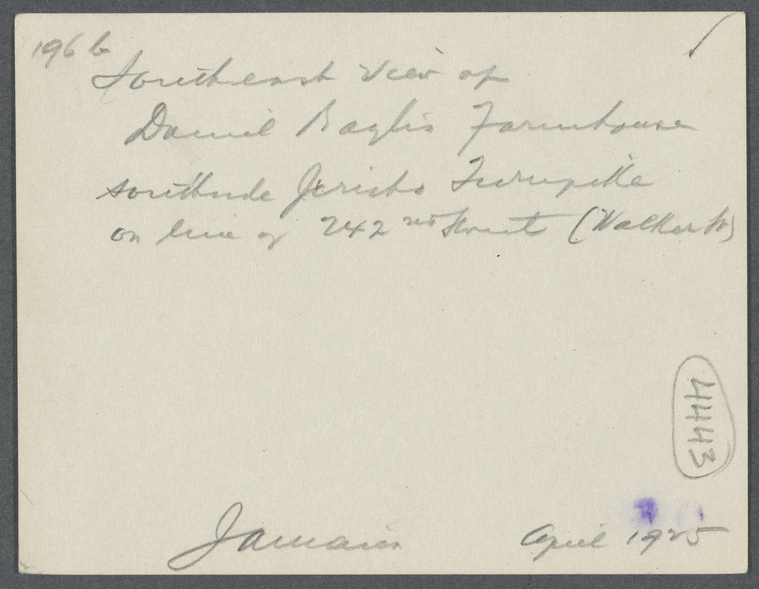 196 b
Southeast View of
Daniel Baylis Farmhouse
southside Jericho Turnpike
on line of 242nd Street (Walker St)
4443
Jamaica April 1925